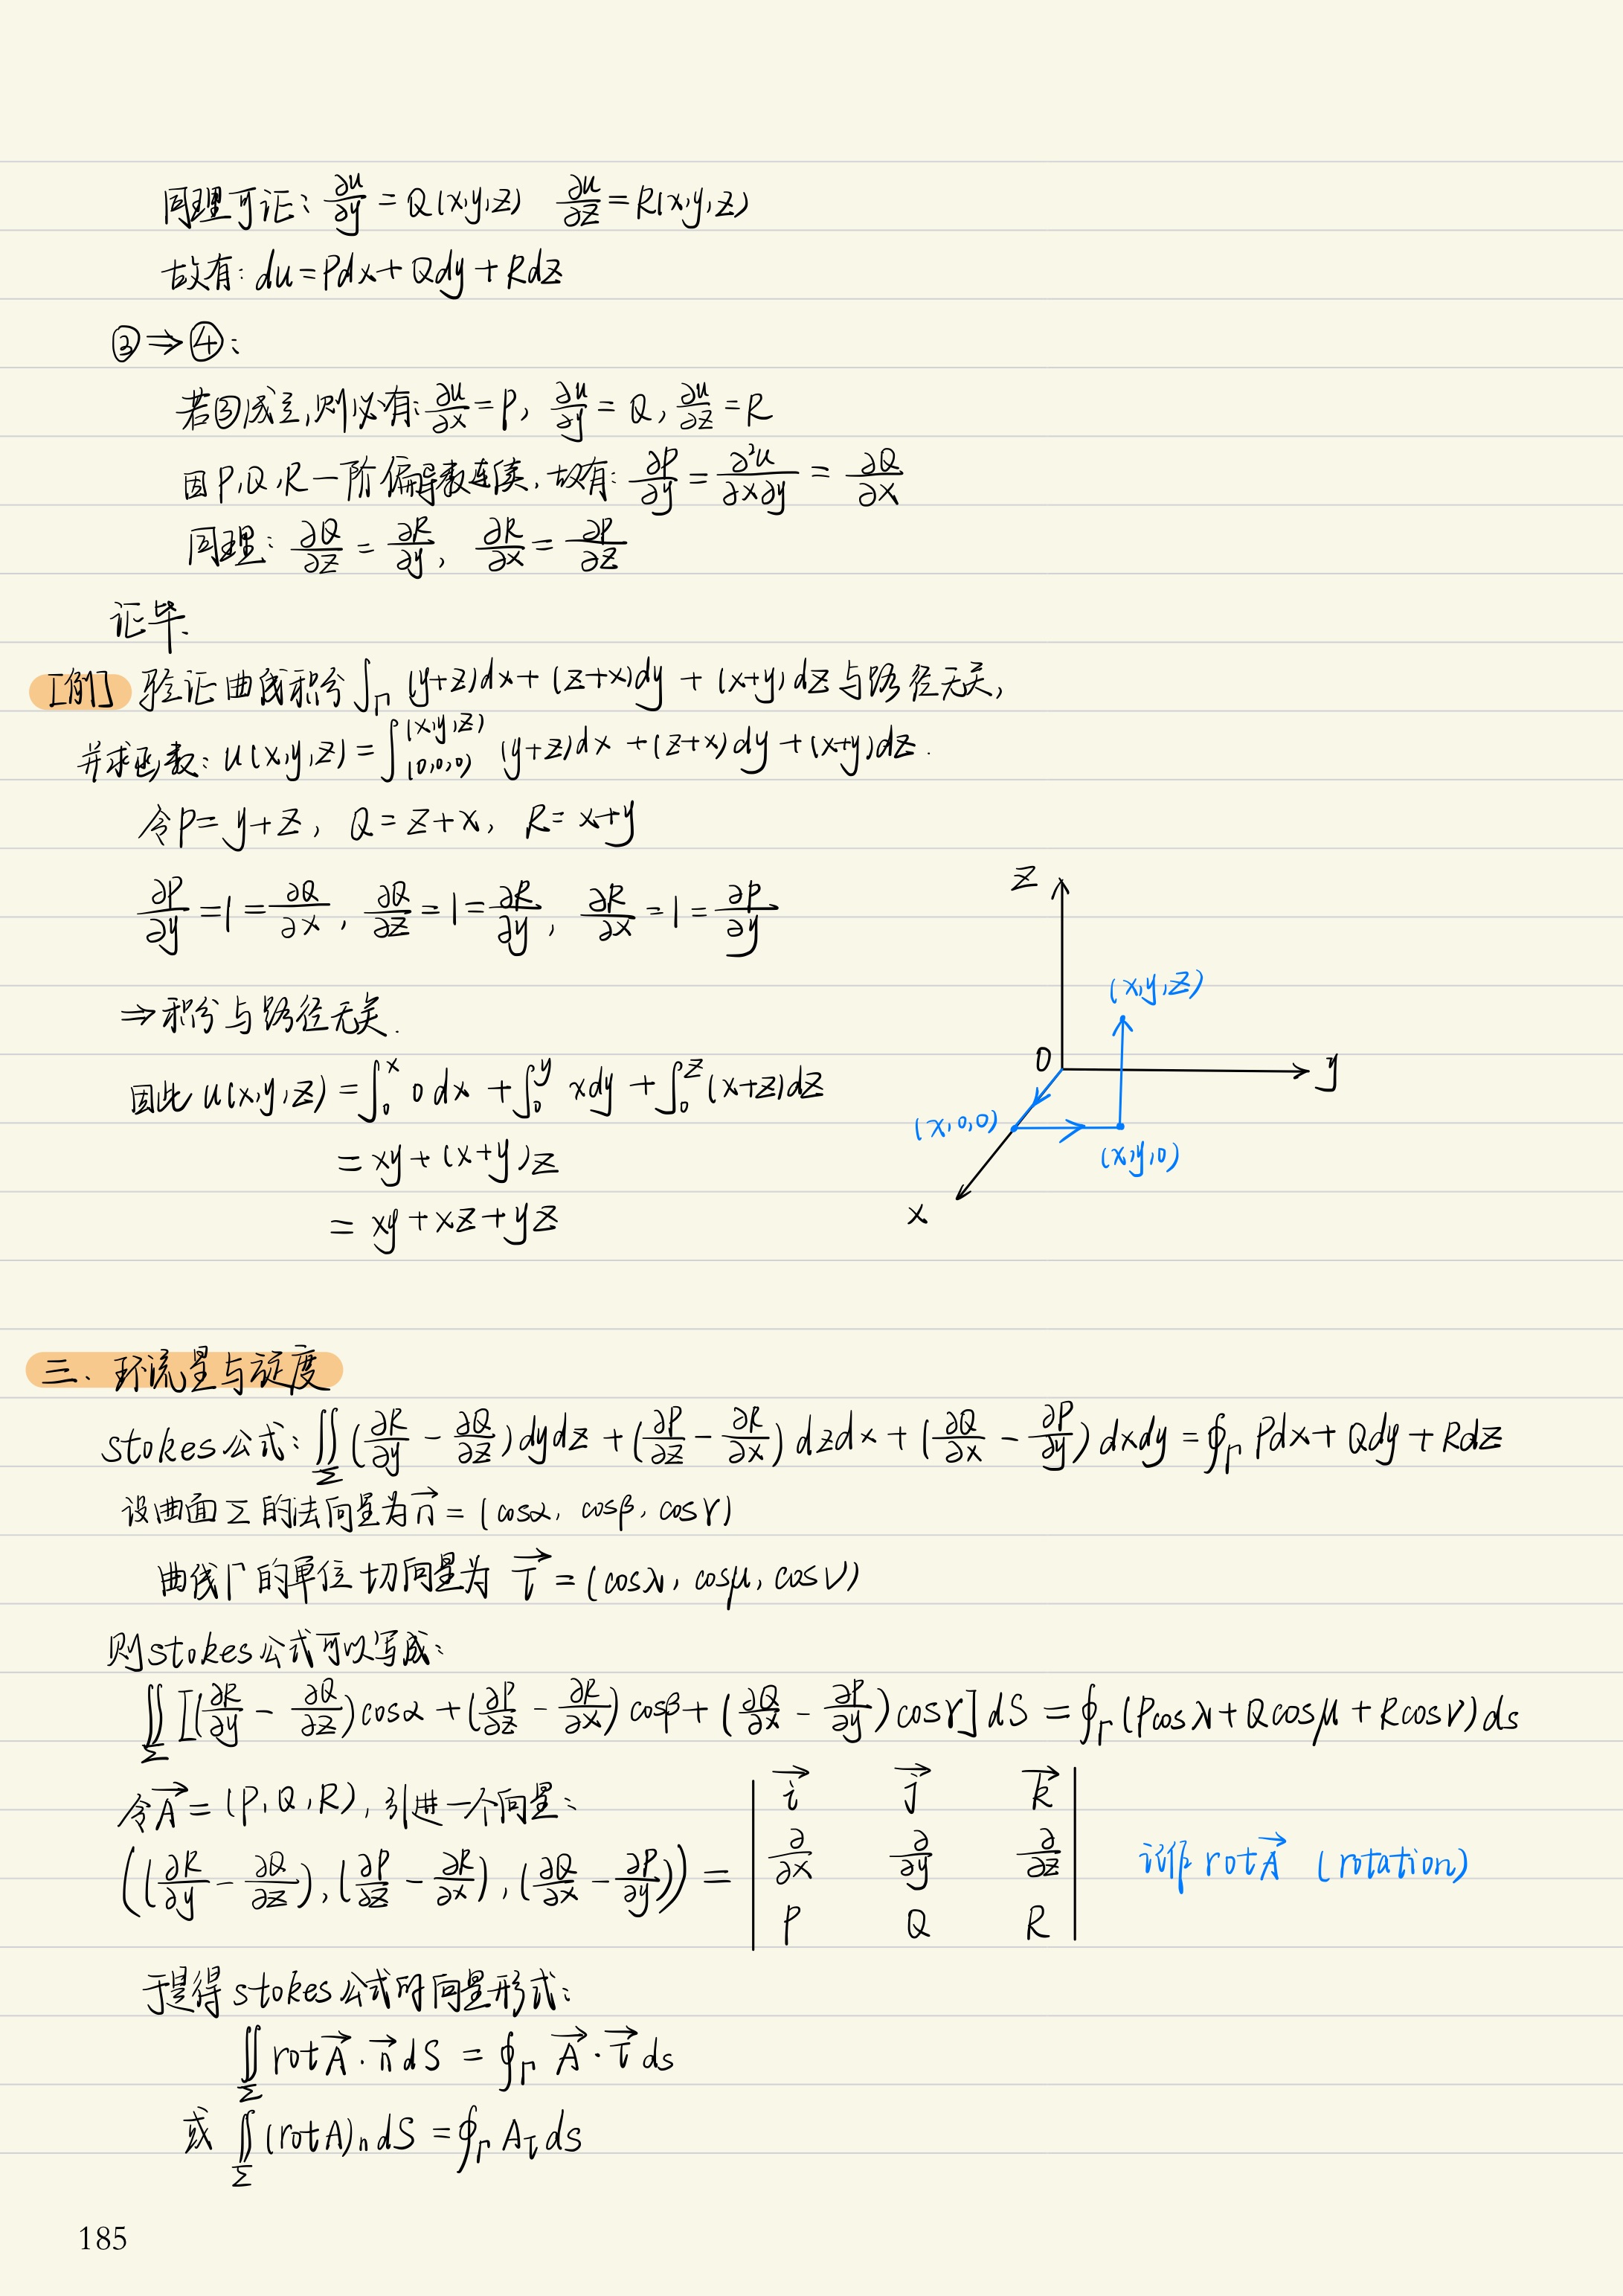 同理可证: ∂u/∂y = Q(x,y,z) ∂u/∂z = R(x,y,z)
故有: du = Pdx + Qdy + Rdz
③ ⇒ ④:
若③成立,则必有: ∂u/∂x = P, ∂u/∂y = Q, ∂u/∂z = R
因P,Q,R一阶偏导数连续,故有: ∂P/∂y = ∂²u/∂x∂y = ∂Q/∂x
同理: ∂Q/∂z = ∂R/∂y, ∂R/∂x = ∂P/∂z
证毕.
[例] 验证曲线积分 ∫_Γ (y+z)dx + (z+x)dy + (x+y)dz 与路径无关,
并求函数: u(x,y,z) = ∫_(0,0,0)^(x,y,z) (y+z)dx + (z+x)dy + (x+y)dz.
令P = y+z, Q = z+x, R = x+y
∂P/∂y = 1 = ∂Q/∂x, ∂Q/∂z = 1 = ∂R/∂y, ∂R/∂x = 1 = ∂P/∂y
⇒ 积分与路径无关.
因此 u(x,y,z) = ∫_0^x 0 dx + ∫_0^y xdy + ∫_0^z (x+z)dz
= xy + (x+y)z
= xy + xz + yz
z
(x,y,z)
0
y
(x,0,0)
(x,y,0)
x
三. 环流量与旋度
stokes公式: ∬_Σ (∂R/∂y - ∂Q/∂z) dydz + (∂P/∂z - ∂R/∂x) dzdx + (∂Q/∂x - ∂P/∂y) dxdy = ∮_Γ Pdx + Qdy + Rdz
设曲面Σ的法向量为 n⃗ = (cosα, cosβ, cosγ)
曲线Γ的单位切向量为 τ⃗ = (cosλ, cosμ, cosν)
则stokes公式可以写成:
∬_Σ [(∂R/∂y - ∂Q/∂z)cosα + (∂P/∂z - ∂R/∂x)cosβ + (∂Q/∂x - ∂P/∂y)cosγ] dS = ∮_Γ (Pcosλ + Qcosμ + Rcosν) ds
令A⃗ = (P,Q,R), 引进一个向量:
((∂R/∂y - ∂Q/∂z), (∂P/∂z - ∂R/∂x), (∂Q/∂x - ∂P/∂y)) = | i⃗ j⃗ k⃗ |
| ∂/∂x ∂/∂y ∂/∂z | 记作 rotA⃗ (rotation)
| P Q R |
于是得stokes公式的向量形式:
∬_Σ rotA⃗·n⃗ dS = ∮_Γ A⃗·τ⃗ ds
或 ∬_Σ (rotA)_n dS = ∮_Γ A_τ ds
185